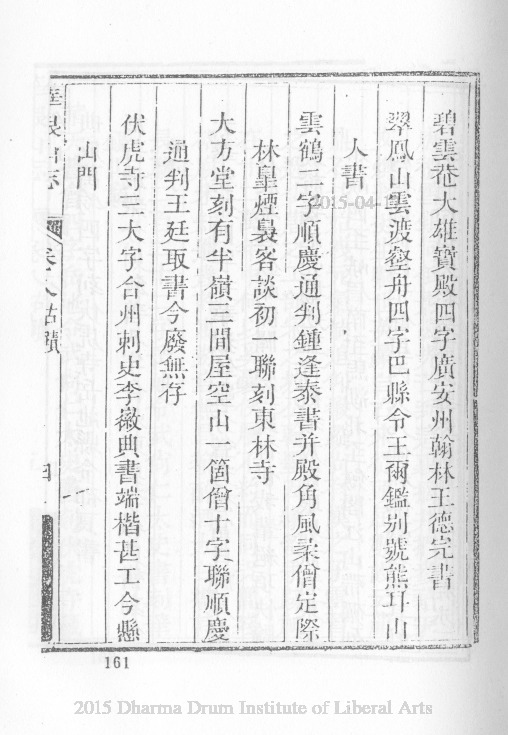 碧雲菴大雄寶殿四字廣安州翰林王德完書
翠鳳山雲渡壑舟四字巴縣令王爾鑑別號熊耳山
人書
雲鶴二字順慶通判鍾逢泰書并殿角風柔僧定際
林臯煙裊客談初一聯刻東林寺
大方堂刻有半嶺三間屋空山一箇僧十字聯順慶
通判王廷取書今廢無存
伏虎寺三大字合州刺史李徽典書端楷甚工今懸
山門
華銀山志 卷之八古蹟 四
161
2015-04-1
2015 Dharma Drum Institute of Liberal Arts